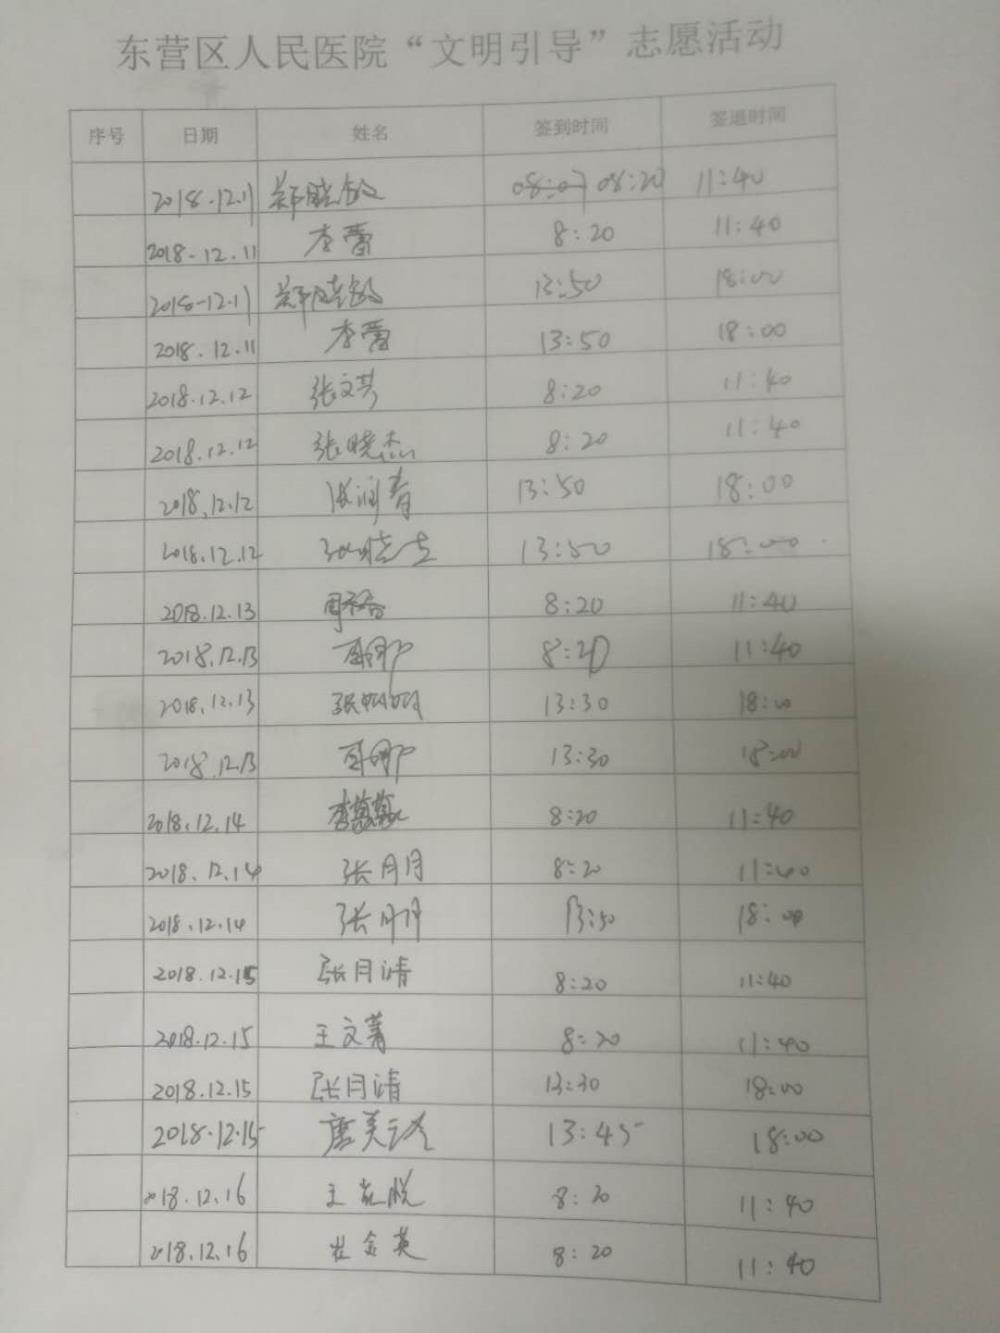 东营区人民医院“文明引导”志愿活动
序号 日期 姓名 签到时间 签退时间
2018.12.11 郑晓敏 08:20 11:40
2018.12.11 李蕾 8:20 11:40
2018.12.11 郑晓敏 13:50 18:00
2018.12.11 李蕾 13:50 18:00
2018.12.12 张文芳 8:20 11:40
2018.12.12 张晓杰 8:20 11:40
2018.12.12 13:50 18:00
2018.12.12 13:50 18:00
2018.12.13 8:20 11:40
2018.12.13 8:20 11:40
2018.12.13 13:30 18:00
2018.12.13 13:30 18:00
2018.12.14 8:20 11:40
2018.12.14 张月月 8:20 11:40
2018.12.14 张月月 13:50 18:00
2018.12.15 张月清 8:20 11:40
2018.12.15 王文菁 8:20 11:40
2018.12.15 张月清 13:30 18:00
2018.12.15 13:45 18:00
2018.12.16 8:20 11:40
2018.12.16 崔金英 8:20 11:40